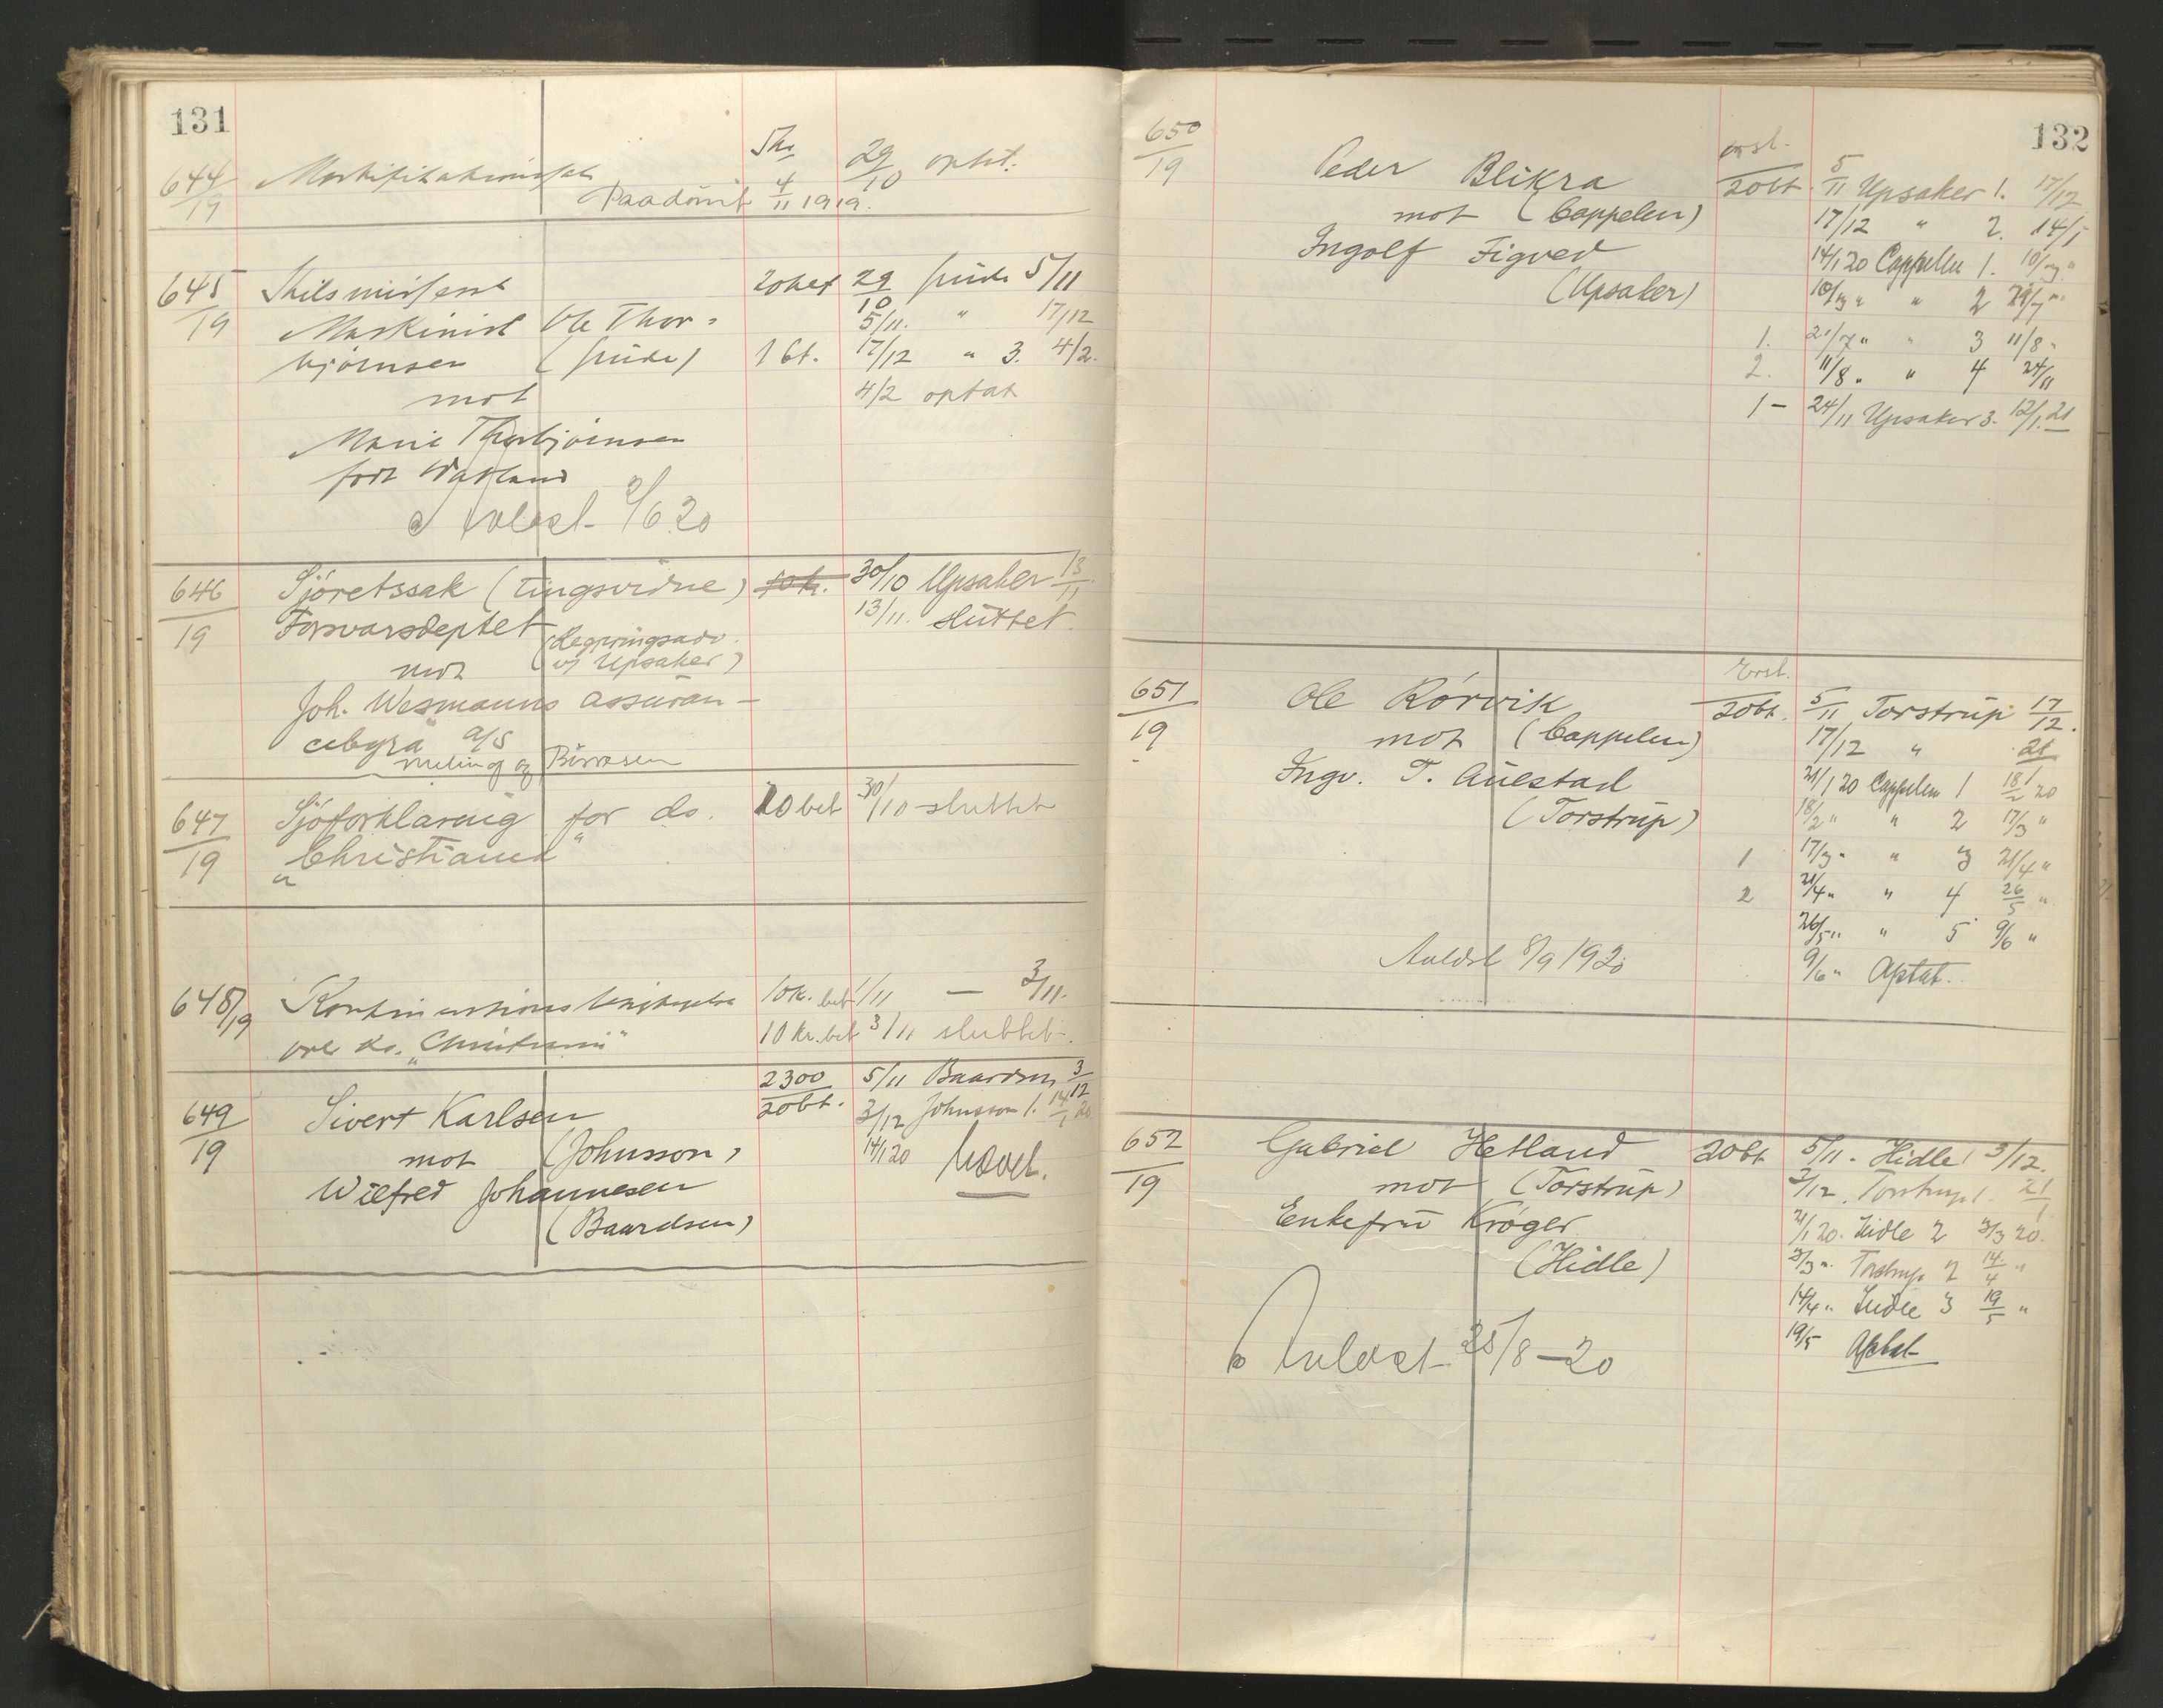 131
644/19 Mortifikationssak 5 kr 29/10 optat.
Paadömt 4/11 1919.
645/19 Skilsmissesak 20 bet 29/10 5/11
Maskinist Ole Thor- 5/11. " 17/12
björnsen 1 bt. 17/12 " 3. 4/2.
mot 4/2 optat
Marie Thorbjörnsen
född
Avldst 2/6 20
646/19 Sjöretssak (Tingsvidne) 30/10 Upsaker 13/11.
Forsvarsdeptet (Regjeringsadv. 13/11. sluttet.
mot v/ Upsaker)
Joh. Wesmanns assuran-
cebyrå a/s
Meling og
647/19 Sjöforklaring for ds. 20 bet 30/10 sluttet
"Christiania"
648/19 Kontinuationsbesigtigelse 10 k. bet 1/11 — 3/11.
over ds. "Christiania" 10 kr. bet 3/11 sluttet.
649/19 Sivert Karlsen 2300/20 bt. 5/11 Baardsen 3/12
mot (Johnsson) 3/12 Johnsson 1. 14/1 20.
Wilfred Johannesen 14/1 20 hævet.
(Baardsen)
132
650/19 Peder Blikra 20 bt. 5/11 Upsaker 1. 17/12
mot (Cappelen) 17/12 " 2. 14/1
Ingolf Figved 14/1 20 Cappelen 1. 10/3 "
(Upsaker) 10/3 " " 2
1. 21/7 " " 3 11/8 "
2. 11/8 " " 4 24/11
1- 24/11 Upsaker 3. 12/1.21
651/19 Ole Rörvik 20 bt. 5/11 Torstrup 17/12.
mot (Cappelen) 17/12 " 21/1
Ingv. T. Auestad 21/1 20 Cappelen 1 18/2 20
(Torstrup) 18/2 " " 2 17/3 "
1 17/3 " " 3 21/4 "
2 21/4 " " 4 26/5 "
26/5 " " 5 9/6 "
Avldst 8/9 1920 9/6 " Optat.
652/19 Gabriel Hetland 20 bt 5/11. Hidle 1 3/12.
mot (Torstrup) 3/12. Torstrup 1. 21/1
Enkefru Kröger 21/1 20. Hidle 2 3/3 20.
(Hidle) 3/3 " Torstrup 2 14/4 "
14/4 " Hidle 3 19/5 "
19/5 Optat
Avldst 25/8-20